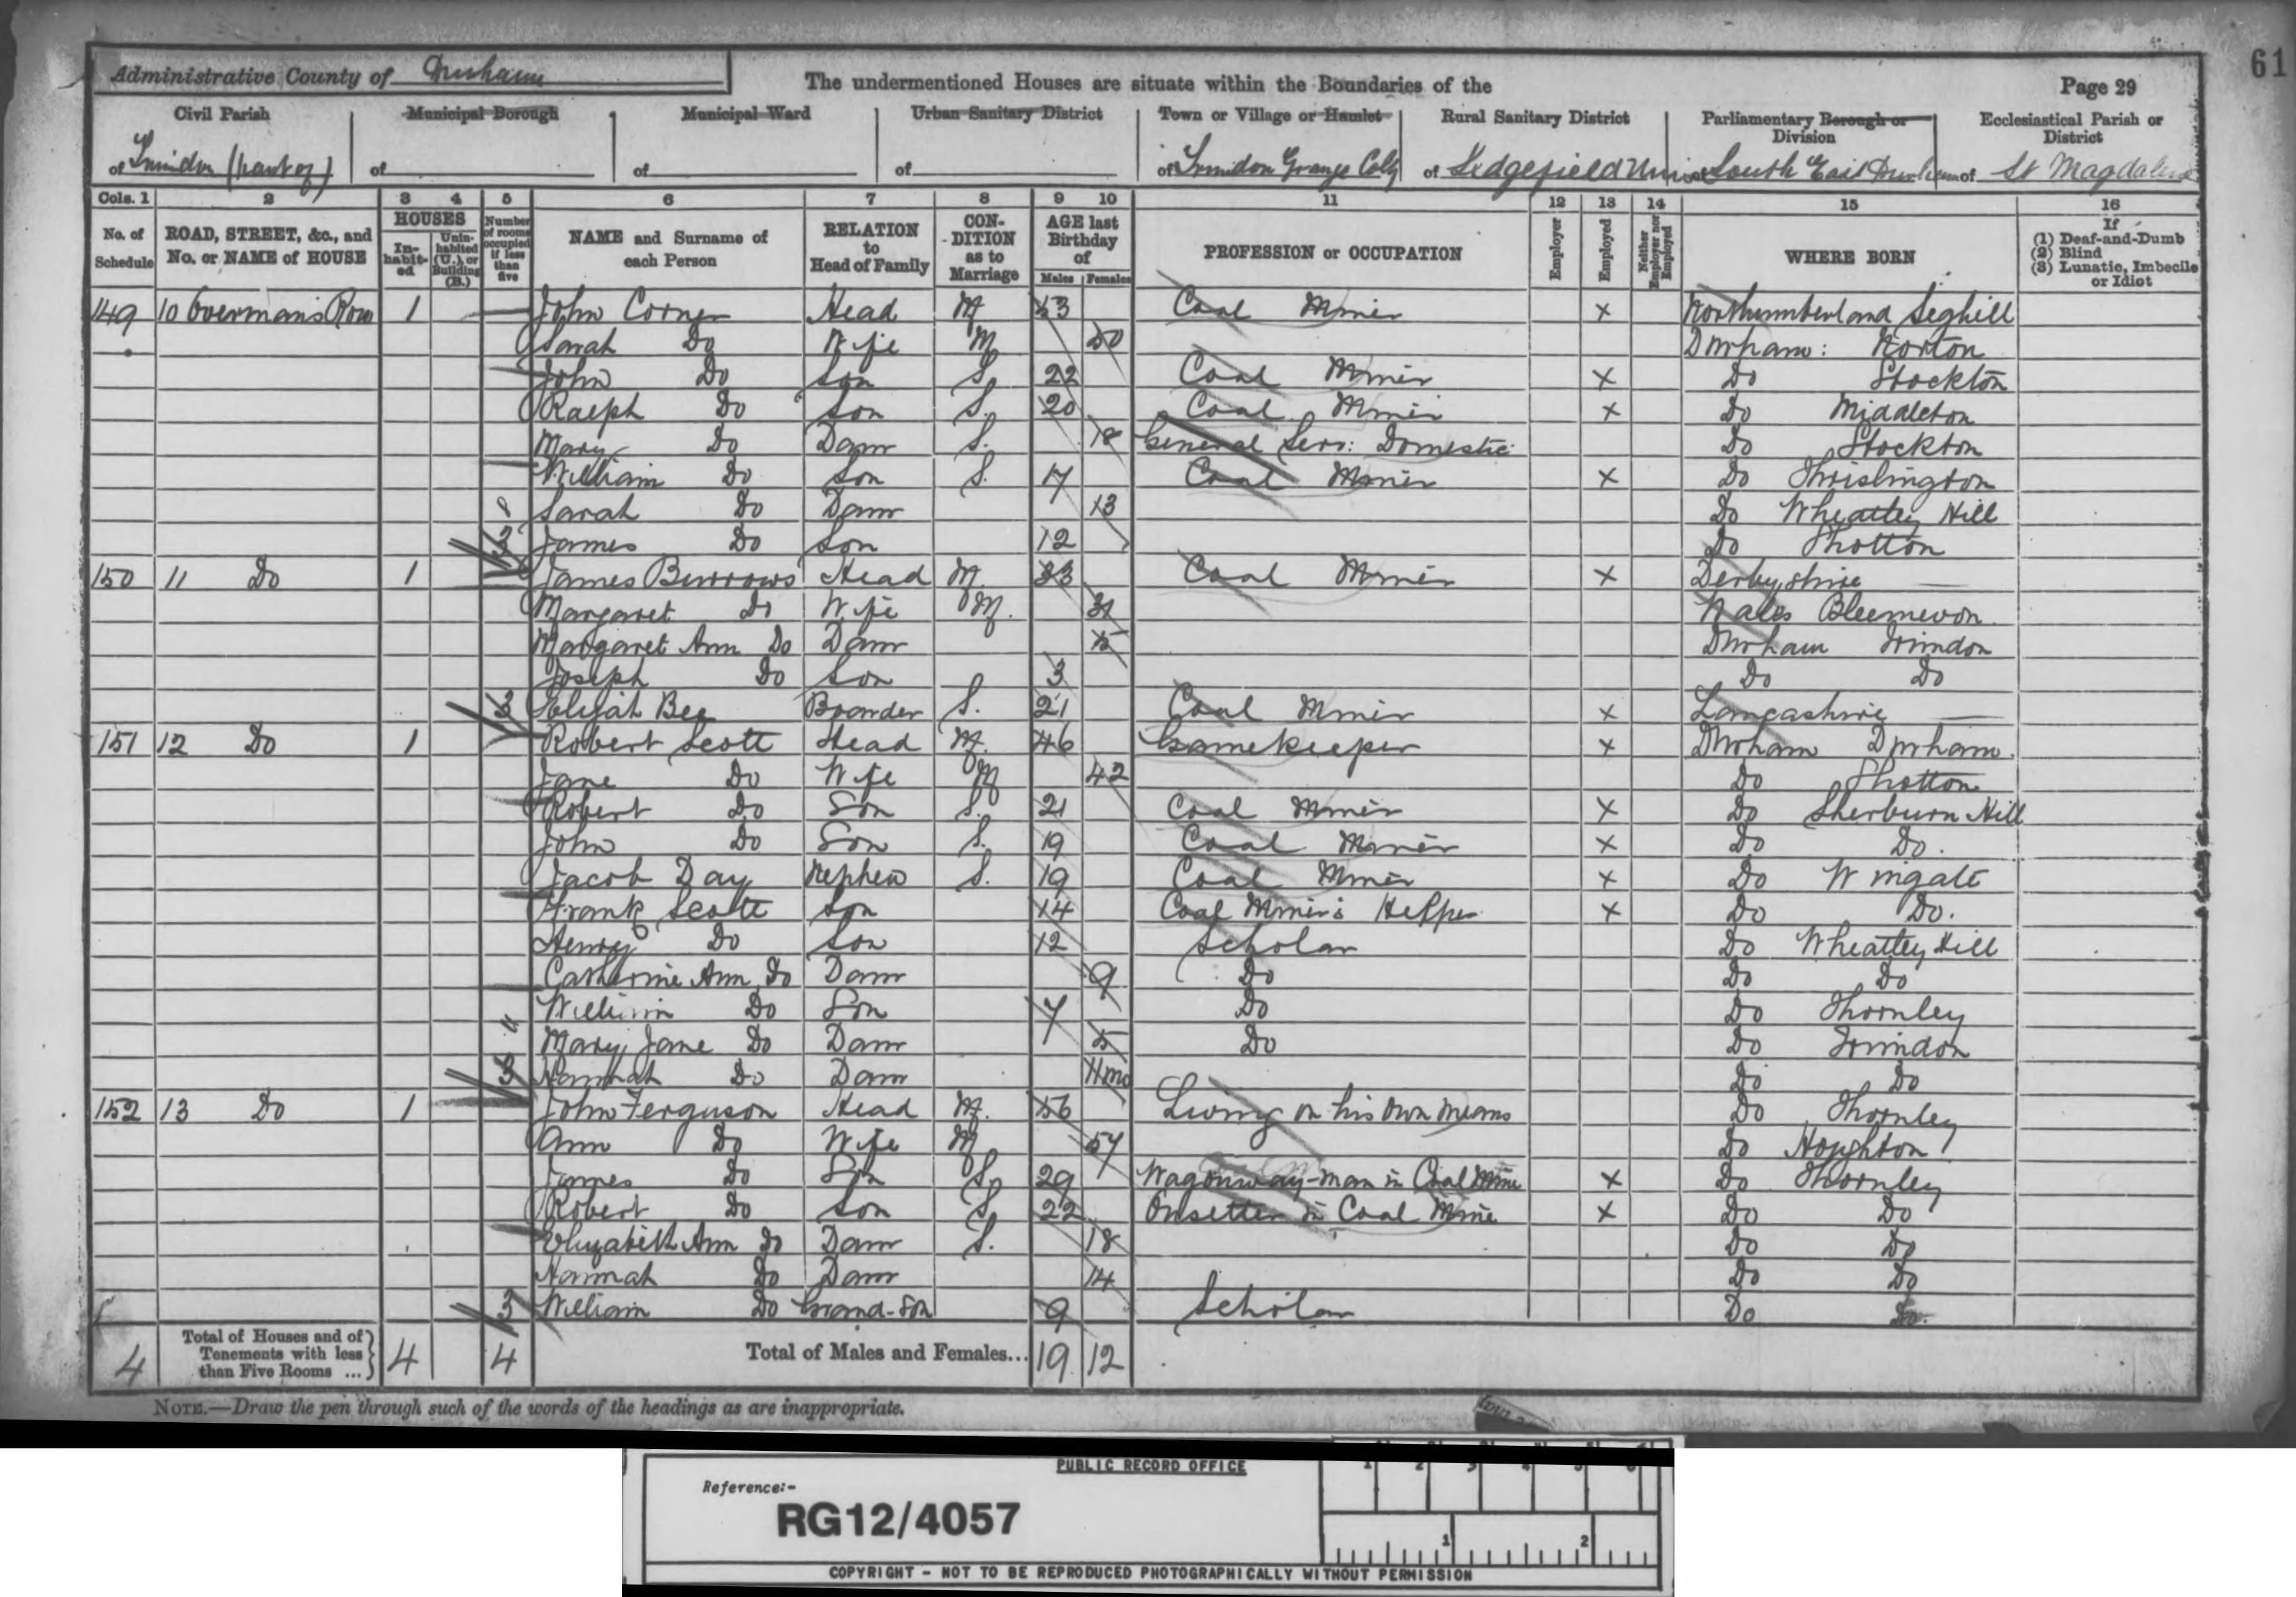 61
Administrative County of Durham
The undermentioned Houses are situate within the Boundaries of the
Page 29
Civil Parish
Municipal Borough
Municipal Ward
Urban Sanitary District
Town or Village or Hamlet
Rural Sanitary District
Parliamentary Borough or Division
Ecclesiastical Parish or District
of Trimdon (part of)
of
of
of
of Trimdon Grange Colly
of Sedgefield Union
South East Durham
of St Magdalene
Cols. 1 2 3 4 5 6 7 8 9 10 11 12 13 14 15 16
No. of Schedule
ROAD, STREET, &c., and No. or NAME of HOUSE
HOUSES
In-habit-ed
Unin-habited (U.), or Building (B.)
Number of rooms occupied if less than five
NAME and Surname of each Person
RELATION to Head of Family
CON-DITION as to Marriage
AGE last Birthday of
Males Females
PROFESSION or OCCUPATION
Employer
Employed
Neither Employer nor Employed
WHERE BORN
If
(1) Deaf-and-Dumb
(2) Blind
(3) Lunatic, Imbecile or Idiot
149 10 Overman's Row 1 John Corner Head M 53 Coal Miner X Northumberland Seghill
Sarah Do Wife M 50 Durham: Norton
John Do Son S. 22 Coal Miner X Do Stockton
Ralph Do Son S. 20 Coal Miner X Do Middleton
Mary Do Daur S. 18 General Serv: Domestic Do Stockton
William Do Son S. 17 Coal Miner X Do Thrislington
8 Sarah Do Daur 13 Do Wheatley Hill
3 James Do Son 12 Do Shotton
150 11 Do 1 James Burrows Head M. 33 Coal Miner X Derbyshire —
Margaret Do Wife M. 31 Wales Bleemevon
Margaret Ann Do Daur 5 Durham Trimdon
Joseph Do Son 3 Do Do
3 Elijah Bee Boarder S. 21 Coal Miner X Lancashire —
151 12 Do 1 Robert Scott Head M. 46 Gamekeeper X Durham Durham
Jane Do Wife M 42 Do Shotton
Robert Do Son S. 21 Coal Miner X Do Sherburn Hill
John Do Son S. 19 Coal Miner X Do Do.
Jacob Day Nephew S. 19 Coal Miner X Do Wingate
Frank Scott Son 14 Coal Miner's Helper X Do Do.
Henry Do Son 12 Scholar Do Wheatley Hill
Catherine Ann Do Daur 9 Do Do Do
William Do Son 7 Do Do Thornley
11 Mary Jane Do Daur 5 Do Do Trimdon
3 Hannah Do Daur 11mo Do Do
152 13 Do 1 John Ferguson Head M. 56 Living on his own means Do Thornley
Ann Do Wife M 57 Do Hoghton
James Do Son S. 29 Wagonway-man in Coal Mine X Do Thornley
Robert Do Son S 22 Onsetter in Coal Mine X Do Do
Elizabeth Ann Do Daur S. 18 Do Do
Hannah Do Daur 14 Do Do
3 William Do Grand-son 9 Scholar Do Do.
4 Total of Houses and of Tenements with less than Five Rooms ... 4 4 Total of Males and Females... 19 12
NOTE.—Draw the pen through such of the words of the headings as are inappropriate.
PUBLIC RECORD OFFICE
Reference:-
RG12/4057
1 2 3 4 5 6
1 2
COPYRIGHT - NOT TO BE REPRODUCED PHOTOGRAPHICALLY WITHOUT PERMISSION